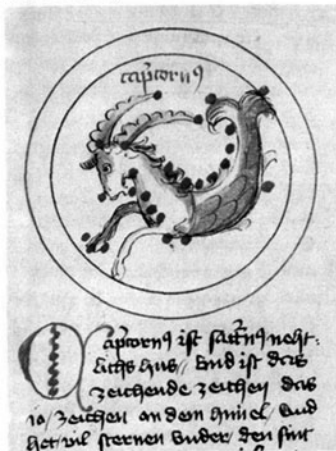 capricornus
Capricornus ist saturnus neht⸗
lichs hus / vnd ist das
zeichende zeichen das
io / zeichen an dem himel / vnd
het vil sternen vnder / den sint